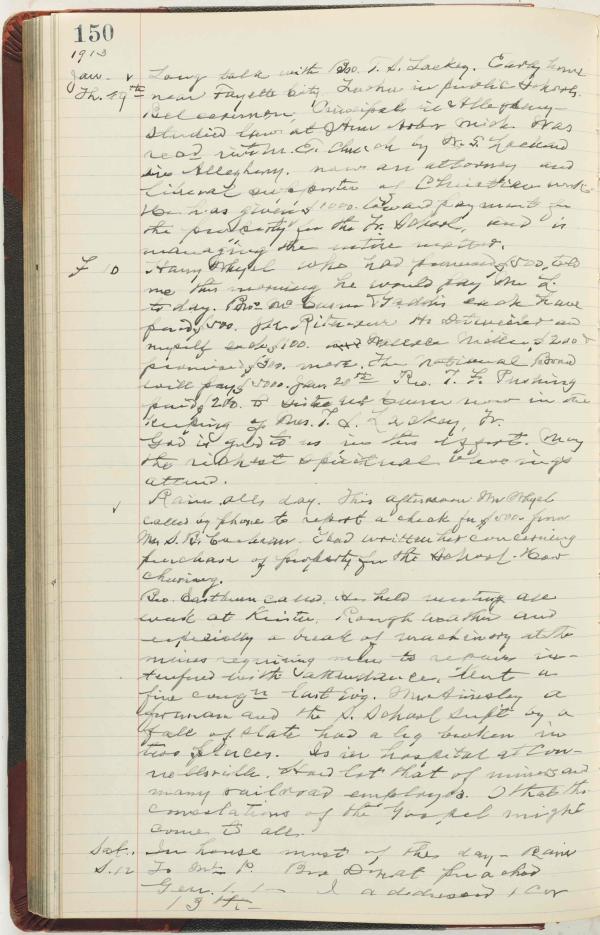 150
1913
Jan. Long talk with Bro. T. S. Lackey. Early home
Th. 9th near Fayette City. Teacher in public schools.
Principal in Allegheny
Studied law at Ann Arbor Mich. Was
rec'd into M. E. Church by
in Allegheny. now an attorney and
liberal supporter of Christian work
He has given $1000. toward payment for
the property for the Tr. School, and is
managing the entire matter.
F 10 Harry who had promised $500, told
me this morning he would pay Mr L.
to day. Bro. each have
paid $500. and
myself each $100. Wallace Miller, $200 &
promised $300. more. The National Board
will pay $5000. Jan. 20th Rev. T. F. Pershing
paid $200. to now in the
keeping of Mrs. T. S. Lackey, Tr.
God is good to us in this effort. May
the richest spiritual blessings
attend.
Rain all day. This afternoon Mr
called by phone to report a check for $500. from
Mrs S. B. Cochran. I had written her concerning
purchase of property for the School. How
cheering.
Bro. Eastburn called. Has held meetings all
week at Keister. Rough weather and
especially a break of machinery at the
mines requiring men to repair in-
terfered with attendance. Had a
fine congn last Evg. Mr Ainsley a
foreman and the S. School Supt by a
fall of slate had a leg broken in
two places. Is in hospital at Con-
nellsville. Hard lot that of miners and
many railroad employes. O that the
consolations of the Gospel might
come to all.
Sat. In house most of the day - Rain
S. 12 To Mt. P. Bro preached
Gen. 1. 1 - I addressed 1 Cor
13 ch.